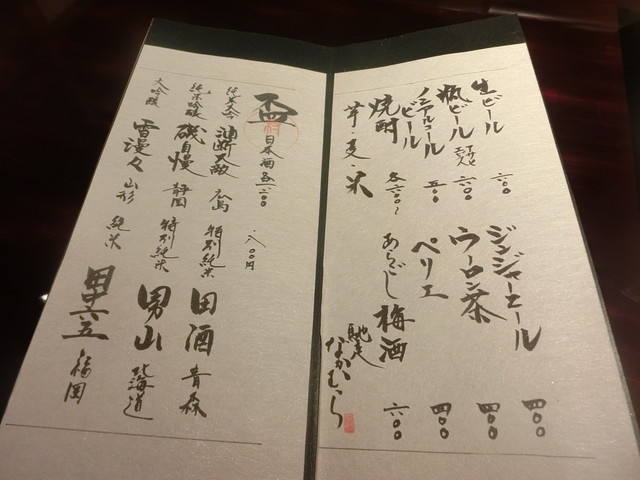 生ビール 六〇〇
瓶ビール ヱビス 六〇〇
ノンアルコールビール 五〇〇
焼酎 各六〇〇〜
芋・麦 米
ジンジャーエール 四〇〇
ウーロン茶 四〇〇
ペリエ 四〇〇
あらごし梅酒 六〇〇
馳走
なかむら
盃 日本酒各
八〇〇円
油断大敵 広島
純米吟醸 磯自慢 静岡
大吟醸 雪漫々 山形
特別純米 田酒 青森
特別純米 男山 北海道
純米 田中六五 福岡